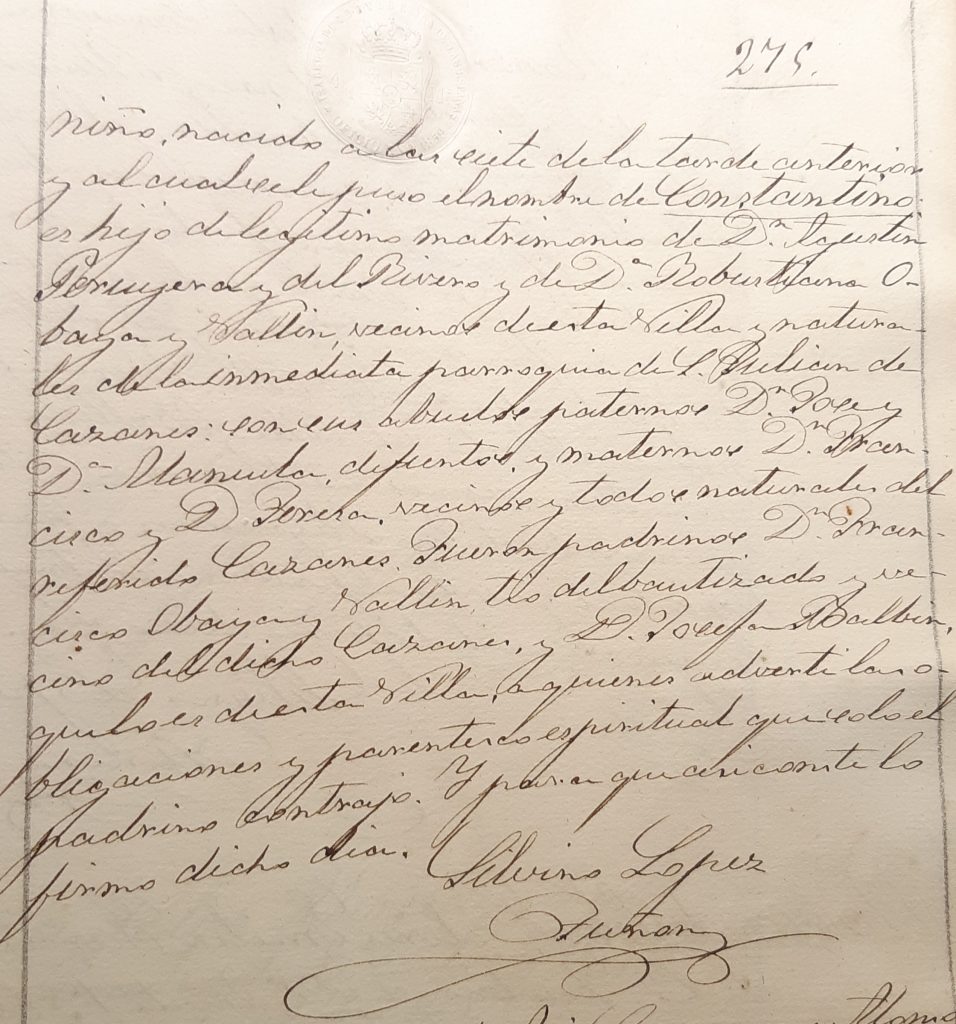 275.
niño, nacido a las siete de la tarde anterior
y al cual se le puso el nombre de Constantino:
es hijo de legitimo matrimonio de Dn. Agustin
Peruyera y del Rivero y de Da. Robustiana O-
baya y Vallin, vecinos de esta Villa y natura-
les de la inmediata parroquia de S. Julian de
Cazanes: son sus abuelos paternos Dn. Jose y
Da. Manuela, difuntos, y maternos Dn. Fran-
cisco y D Teresa, vecinos y todos naturales del
referido Cazanes. Fueron padrinos Dn. Fran-
cisco Obaya y Vallin, tio del bautizado y ve-
cino del dicho Cazanes, y D. Josefa Balbin,
que lo es de esta Villa, a quienes adverti las o-
bligaciones y parentesco espiritual que solo el
padrino contrajo. Y para que asi conste lo
firmo dicho dia.
Silvino Lopez